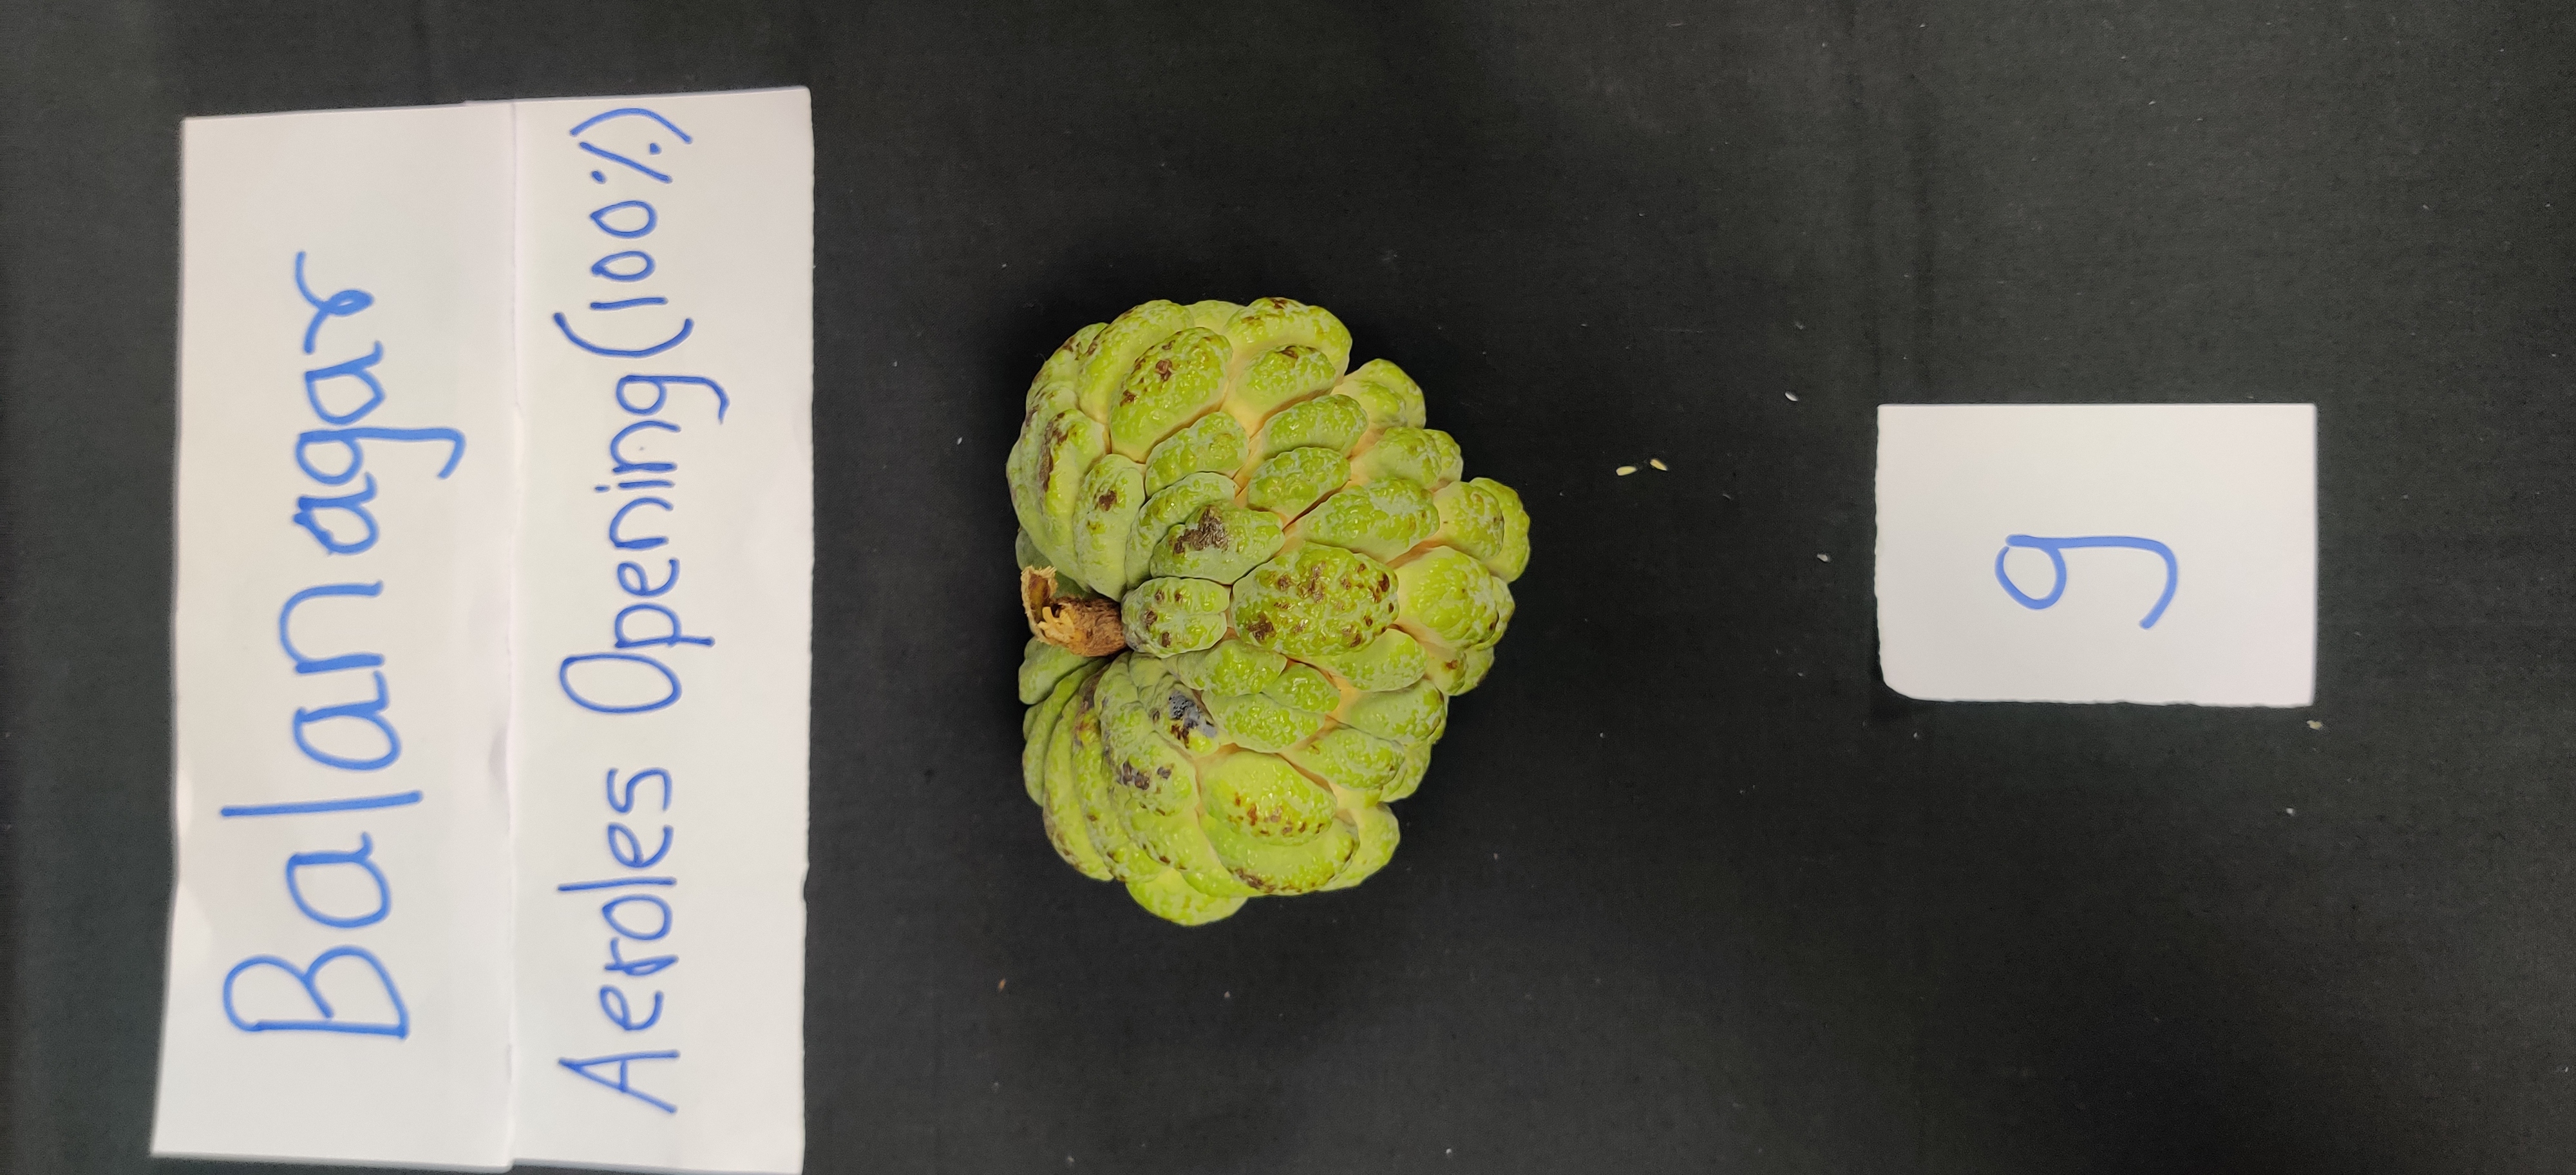 Balanagar
Aeroles Opening (100%)
9